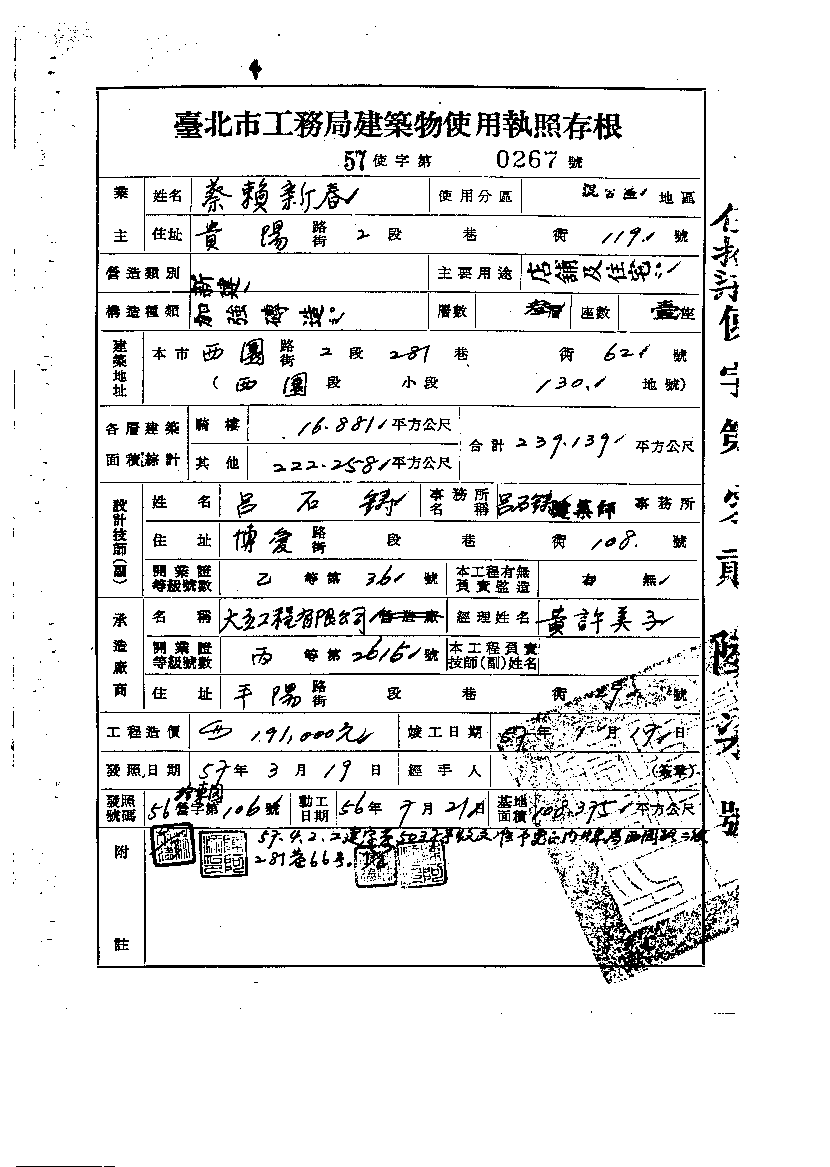 臺北市工務局建築物使用執照存根
57使字第 0267 號
業主 姓名 蔡賴新春 使用分區 地區
住址 貴陽 路街 2 段 巷 街 119 號
營造類別 新建 主要用途 店舖及住宅
構造種類 加強磚造 層數 座數 壹座
建築地址 本市 西園 路街 2 段 281 巷 街 62 號
(西園 段 小段 130 地號)
各層建築面積綜計 騎樓 16.881 平方公尺 合計 239.139 平方公尺
其他 222.258 平方公尺
設計技師(副) 姓名 呂石 事務所名稱 呂石 建築師 事務所
住址 博愛 路街 段 巷 街 108 號
開業證等級號數 乙 等第 361 號 本工程有無負責監造 有 無
承造廠商 名稱 工程有限公司 營造廠 經理姓名 黃許美子
開業證等級號數 丙 等第 號 本工程負責技師(副)姓名
住址 平陽 路街 段 巷 街 號
工程造價 191,000元 竣工日期 57 年 月 日
發照日期 57 年 3 月 19 日 經手人 (簽章)
發照號碼 56 營字第 106 號 動工日期 56 年 9 月 21 日 基地面積 108.375 平方公尺
附註 57.4.2. 西園路二段
281巷66号